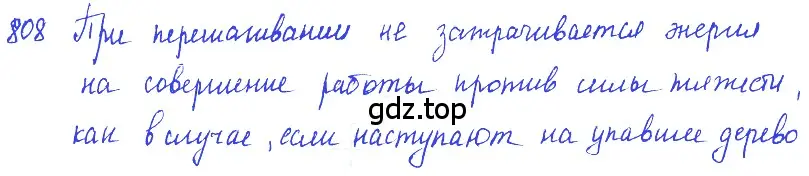 808 При перешагивании не затрачивается энергия
на совершение работы против силы тяжести,
gdz.top
как в случае, если наступают на упавшее дерево